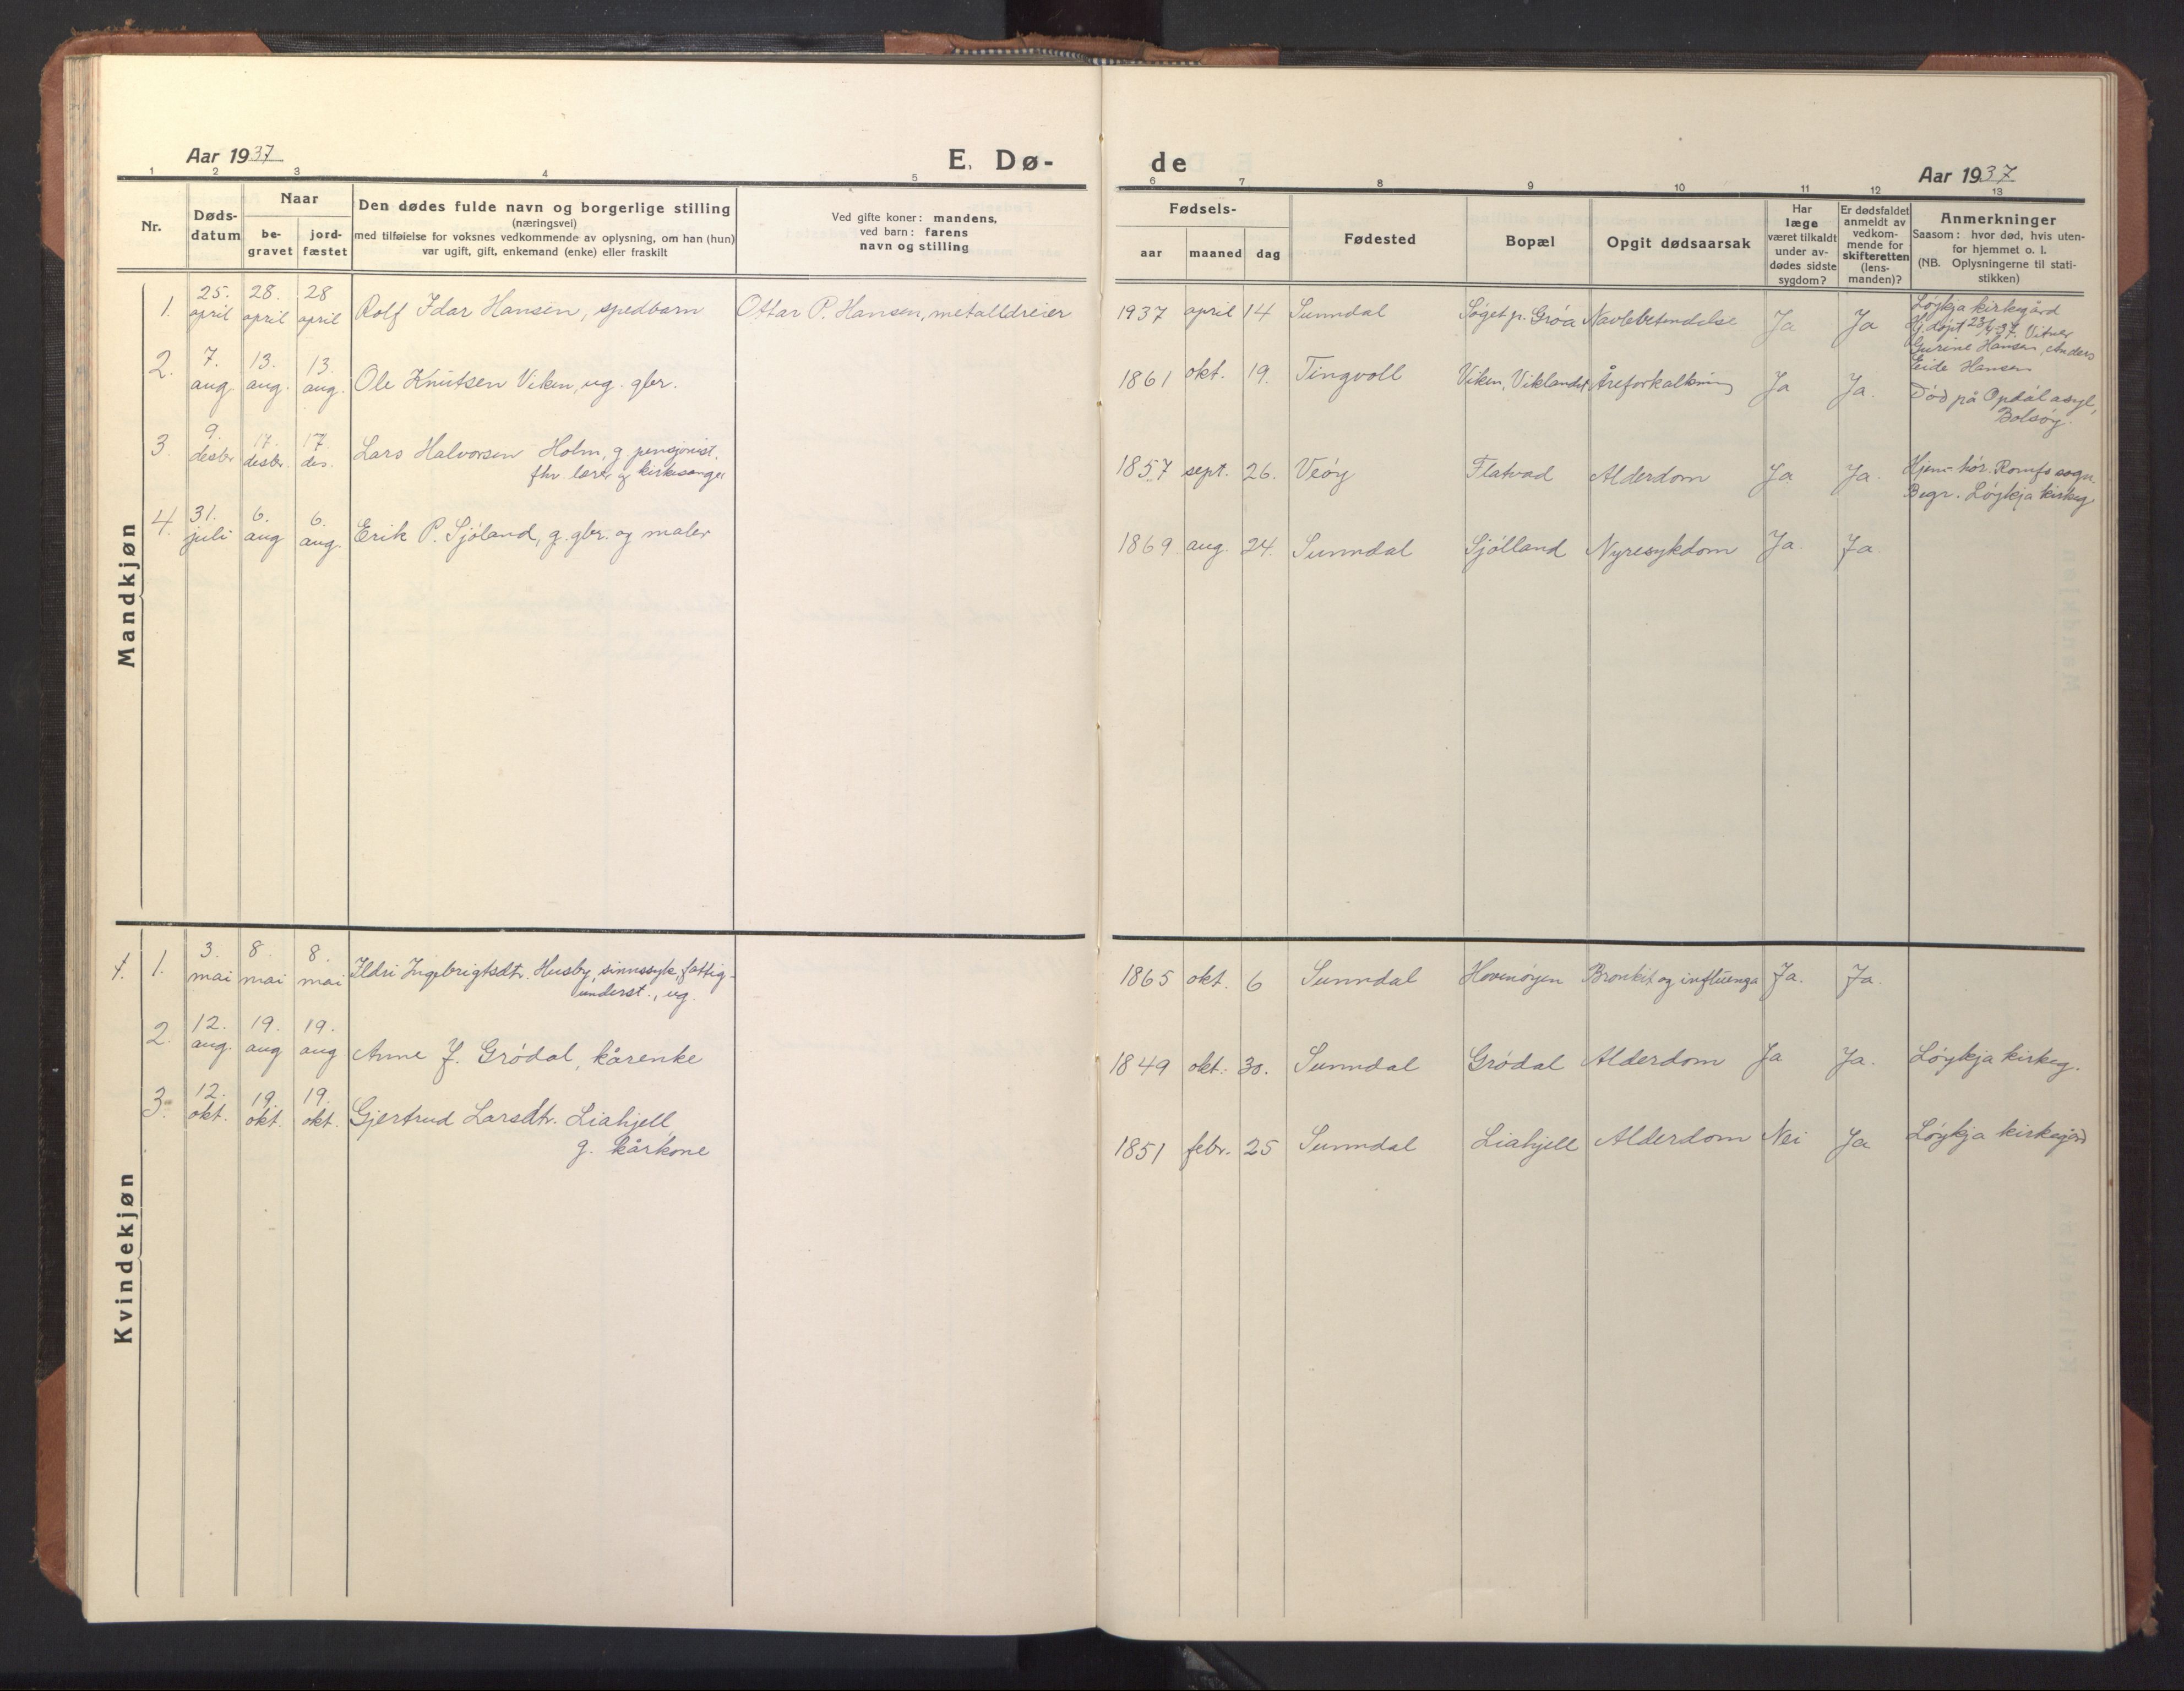 Aar 1937
E. Dø-
de
Aar 1937
1 2 3 4 5 6 7 8 9 10 11 12 13
Nr.
Døds-
datum
Naar
be-
gravet
jord-
fæstet
Den dødes fulde navn og borgerlige stilling
(næringsvei)
med tilføielse for voksnes vedkommende av oplysning, om han (hun)
var ugift, gift, enkemand (enke) eller fraskilt
Ved gifte koner: mandens,
ved barn: farens
navn og stilling
Fødsels-
aar maaned dag
Fødested
Bopæl
Opgit dødsaarsak
Har
læge
været tilkaldt
under av-
dødes sidste
sygdom?
Er dødsfaldet
anmeldt av
vedkom-
mende for
skifteretten
(lens-
manden)?
Anmerkninger
Saasom: hvor død, hvis uten-
for hjemmet o. l.
(NB. Oplysningerne til stati-
stikken)
Mandkjøn
1. 25. april 28. april 28 april Rolf Idar Hansen, spedbarn Ottar P. Hansen, metalldreier 1937 april 14 Sunndal Søget p. Grøa Navlebetendelse Ja Ja Løykja kirkegård
Hj.døpt 23/4-37. Vitner
Gurine Hansen, Anders
Eide Hansen
2. 7. aug 13. aug. 13. aug. Ole Knutsen Viken, ug. gbr. 1861 okt. 19. Tingvoll Viken, Viklandet Åreforkalkning Ja Ja. Død på Opdøl asyl,
Bolsøy.
3. 9. desbr 17. desbr. 17. des. Lars Halvorsen Holm, g pensjonist.
fhv. lærer og kirkesanger 1857 sept. 26. Veøy Flatvad Alderdom Ja Ja. Hjem-hør. Romfo sogn.
Begr. Løykja kirkeg
4. 31. juli 6. aug 6. aug. Erik P. Sjøland, g. gbr. og maler 1869 aug. 24. Sunndal Sjølland Nyresykdom Ja Ja
Kvindekjøn
1. 3. mai 8. mai 8. mai Ildri Ingebrigtsdtr. Husby, sinnssyk fattig-
underst., ug. 1865 okt. 6 Sunndal Hovenøyen Bronkit og influenga Ja. Ja.
2. 12. aug. 19. aug 19. aug Anne J. Grødal, kårenke 1849 okt. 30. Sunndal Grødal Alderdom Ja Ja. Løykja kirkeg.
3. 12. okt. 19. okt. 19. okt. Gjertrud Larsdtr. Liahjell
g. kårkone 1851 febr. 25 Sunndal Liahjell Alderdom Nei Ja Løykja kirkegård